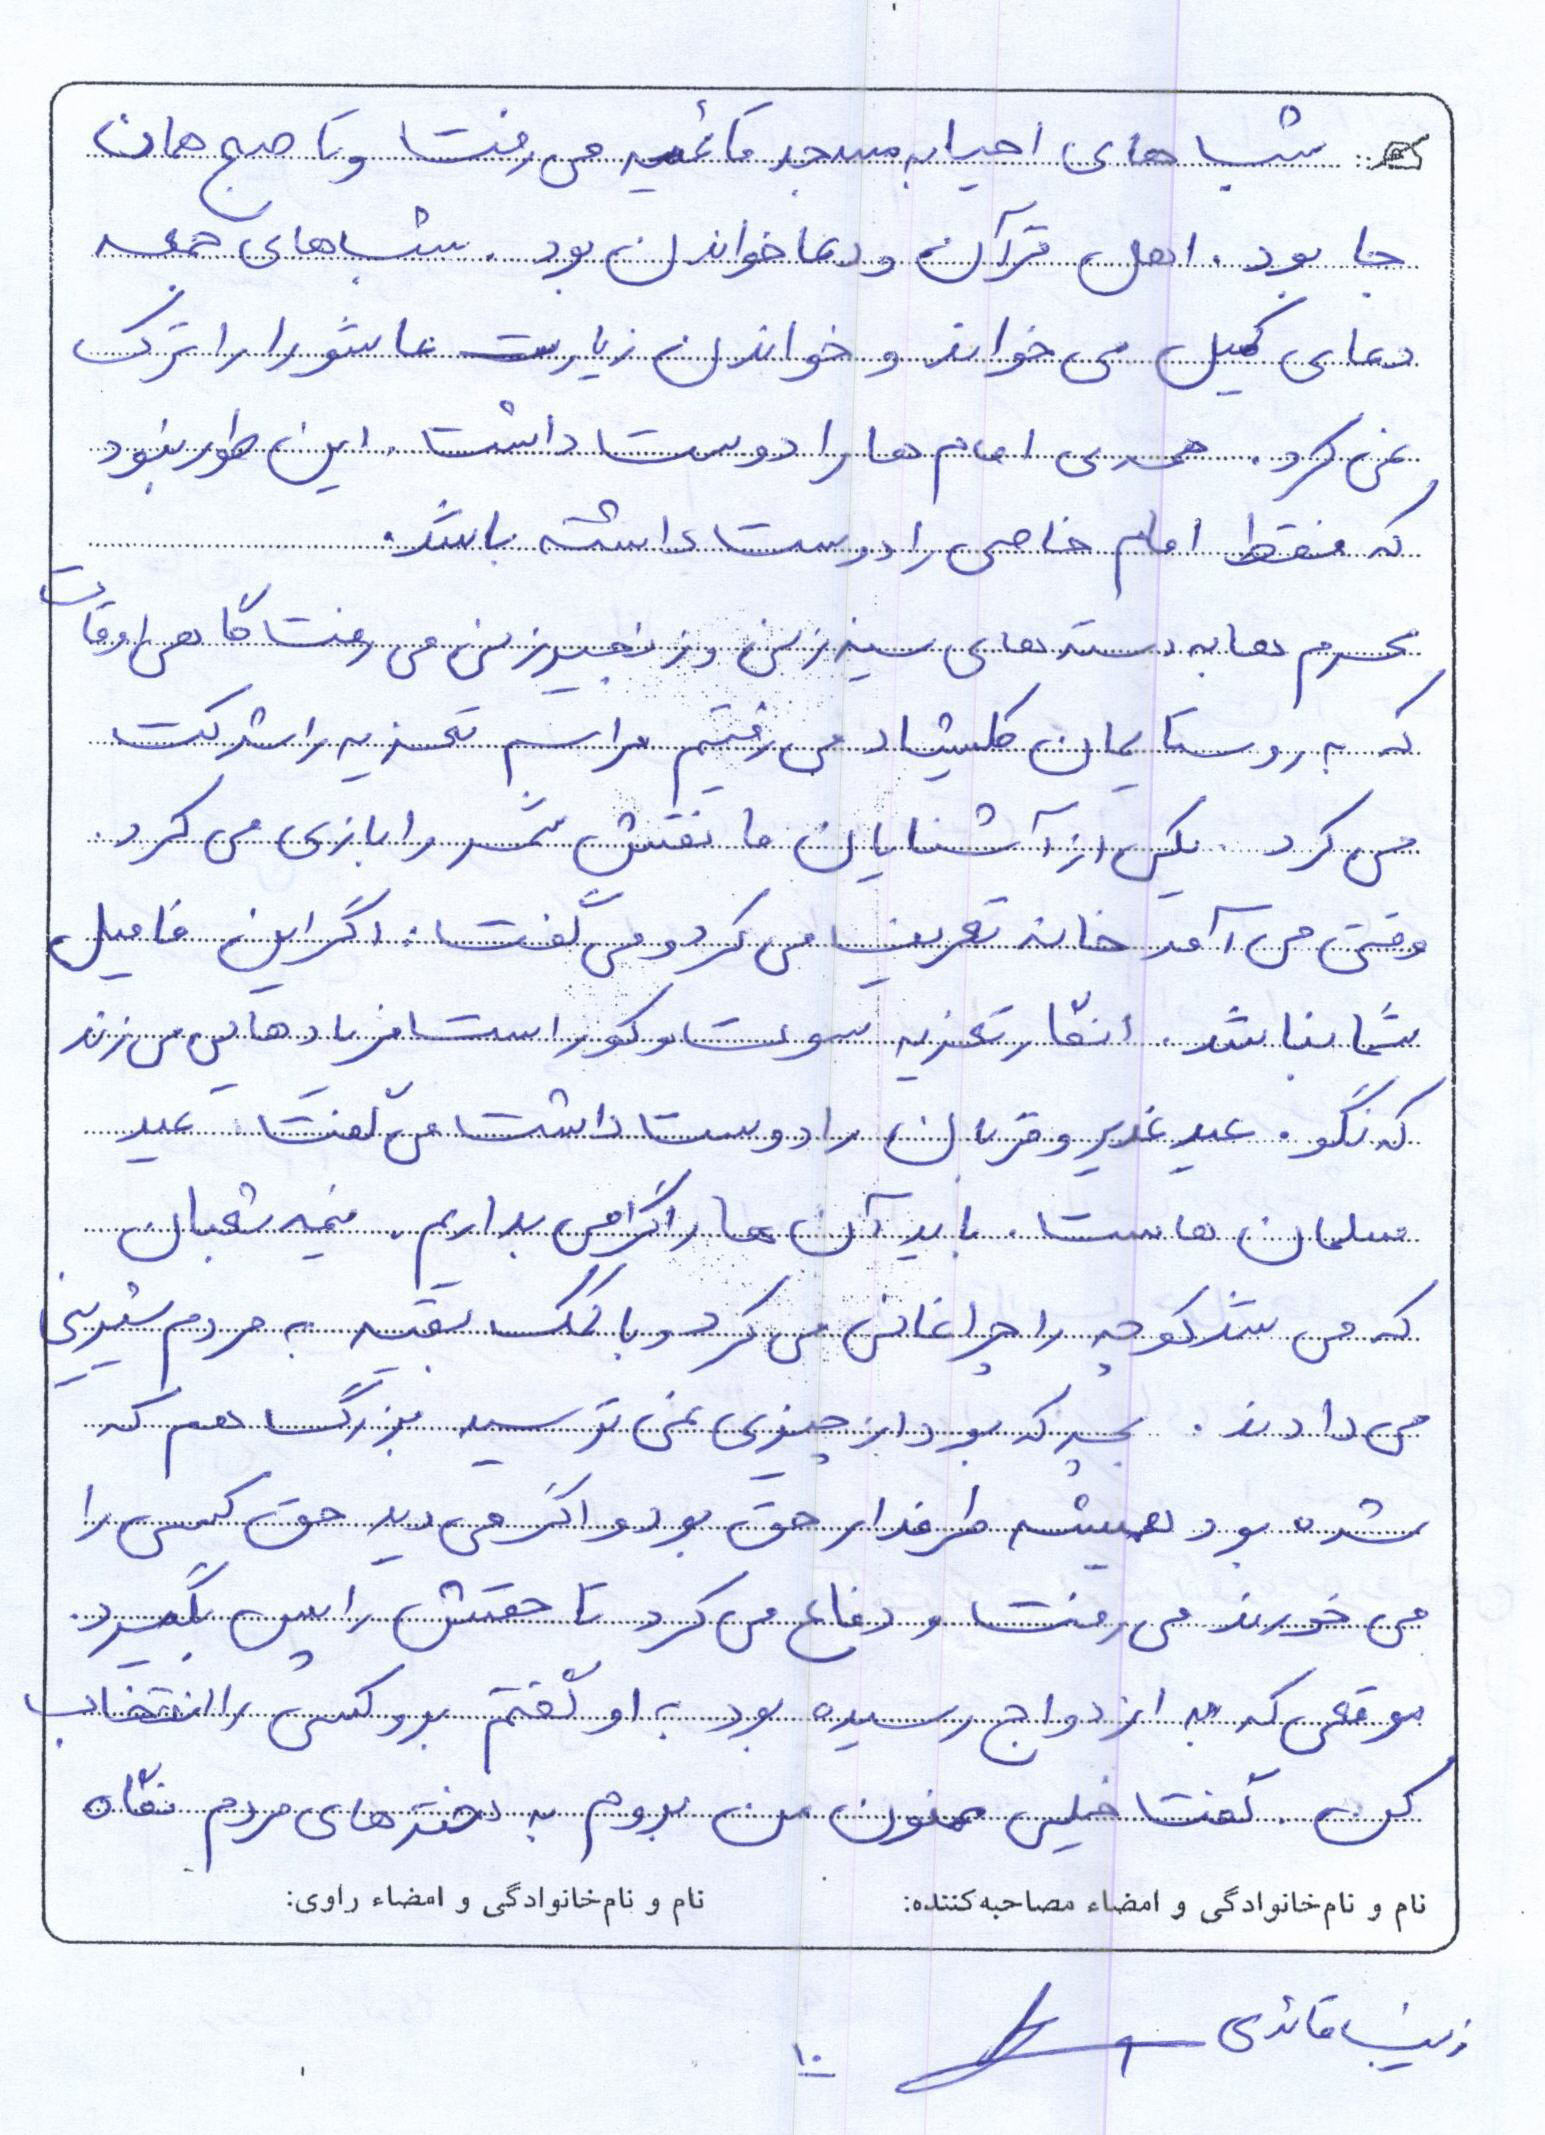 شب های احیا به مسجد قائمیه می رفت و تا صبح همان
جا بود. اهل قرآن و دعا خواندن بود. شب های جمعه
دعای کمیل می خواند و خواندن زیارت عاشورا را ترک
نمی کرد. همه ی امام ها را دوست داشت. این طور نبود
که فقط امام خاصی را دوست داشته باشد.
محرم ها به دسته های سینه زنی و زنجیر زنی می رفت گاهی اوقات
که به روستایمان کلیشاد می رفتیم مراسم تعزیه را شرکت
می کرد. یکی از آشنایان ما نقش شمر را بازی می کرد
وقتی می آمد خانه تعریف می کرد و می گفت: اگر این فامیل
شما نباشد. انگار تعزیه سوت و کور است فریادهایی می زند
که نگو. عید غدیر و قربان را دوست داشت می گفت: عید
مسلمان هاست. باید آن ها را گرامی بداریم. نیمه شعبان
که می شد کوچه را چراغانی می کرد و با کمک بقیه به مردم شیرینی
می دادند. بچه که بود از چیزی نمی ترسید بزرگ هم که
شده بود همیشه طرفدار حق بود و اگر می دید حق کسی را
می خورند می رفت و دفاع می کرد تا حقش را پس بگیرد.
موقعی که به ازدواج رسیده بود به او گفتم برو کسی را انتخاب
کن. گفت خیلی ممنون من بروم به دخترهای مردم نگاه
نام و نام خانوادگی و امضاء مصاحبه کننده: نام و نام خانوادگی و امضاء راوی:
زینب قائدی
۱۰